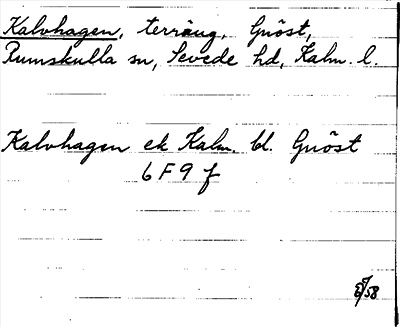 Kalvhagen, terräng, Gnöst,
Rumskulla sn, Sevede hd, Kalm. l.
Kalvhagen ek Kalm. bl. Gnöst
6 F 9 f
58